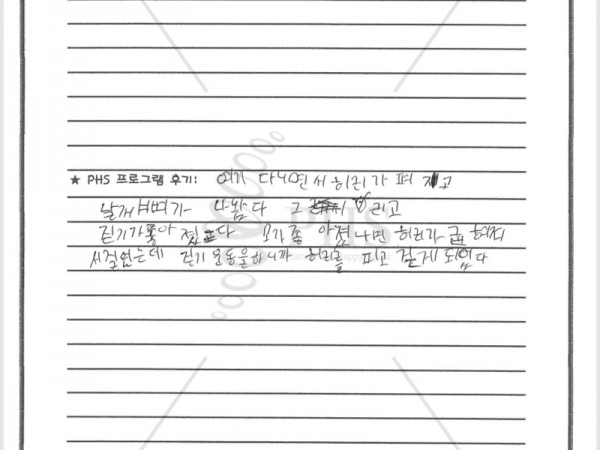 ★ PHS 프로그램 후기: 여기 다니면서 허리가 펴 지고
날개 뼈가 나왔다 그 리고
걷기가 좋아 졌다 뭐가 좋 아졌 냐면 허리가 굽
서 걸었는데 걷기 운동을하니까 허리를 피고 걷게 되었다
PHS